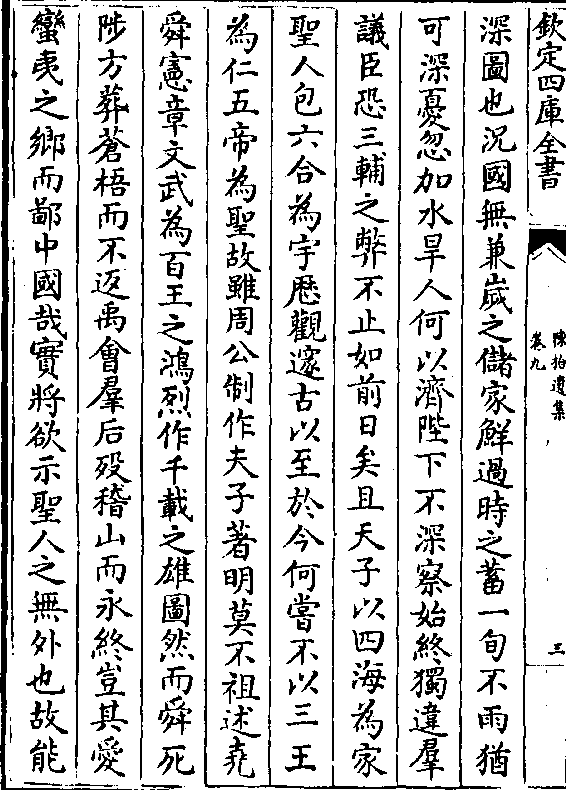 欽定四庫全書
陳拾遺集
卷九
三
深圖也況國無兼嵗之儲家鮮過時之蓄一旬不雨猶
可深憂忽加水旱人何以濟陛下不深察始終獨違羣
議臣恐三輔之弊不止如前日矣且天子以四海為家
聖人包六合為宇厯觀邃古以至於今何嘗不以三王
為仁五帝為聖故雖周公制作夫子著明莫不祖述堯
舜憲章文武為百王之鴻烈作千載之雄圖然而舜死
陟方葬蒼梧而不返禹會羣后殁稽山而永終豈其愛
蠻夷之鄉而鄙中國哉實將欲示聖人之無外也故能